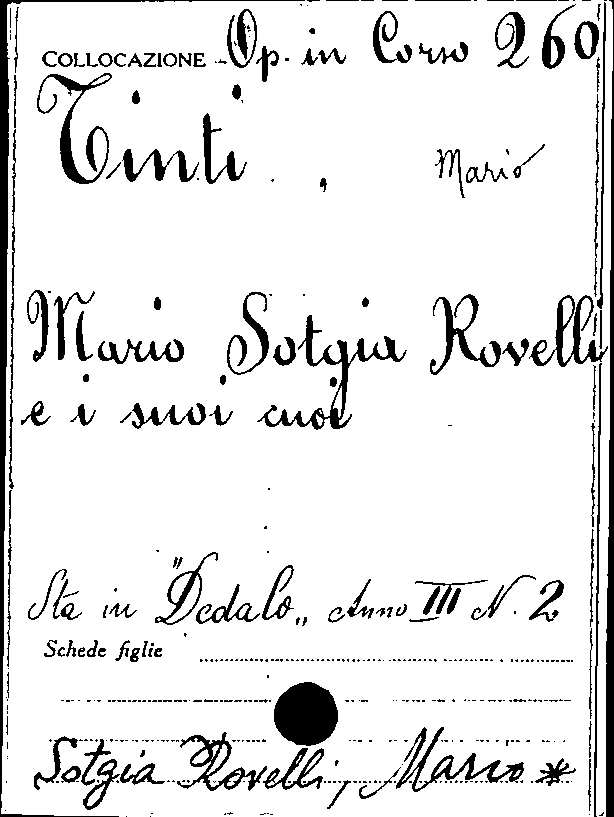 COLLOCAZIONE Op. in Corso 260
Tinti, Mario
Mario Sotgia Rovelli
e i suoi cuoi
Sta in "Dedalo„ Anno III N. 2
Schede figlie
Sotgia Rovelli, Mario *